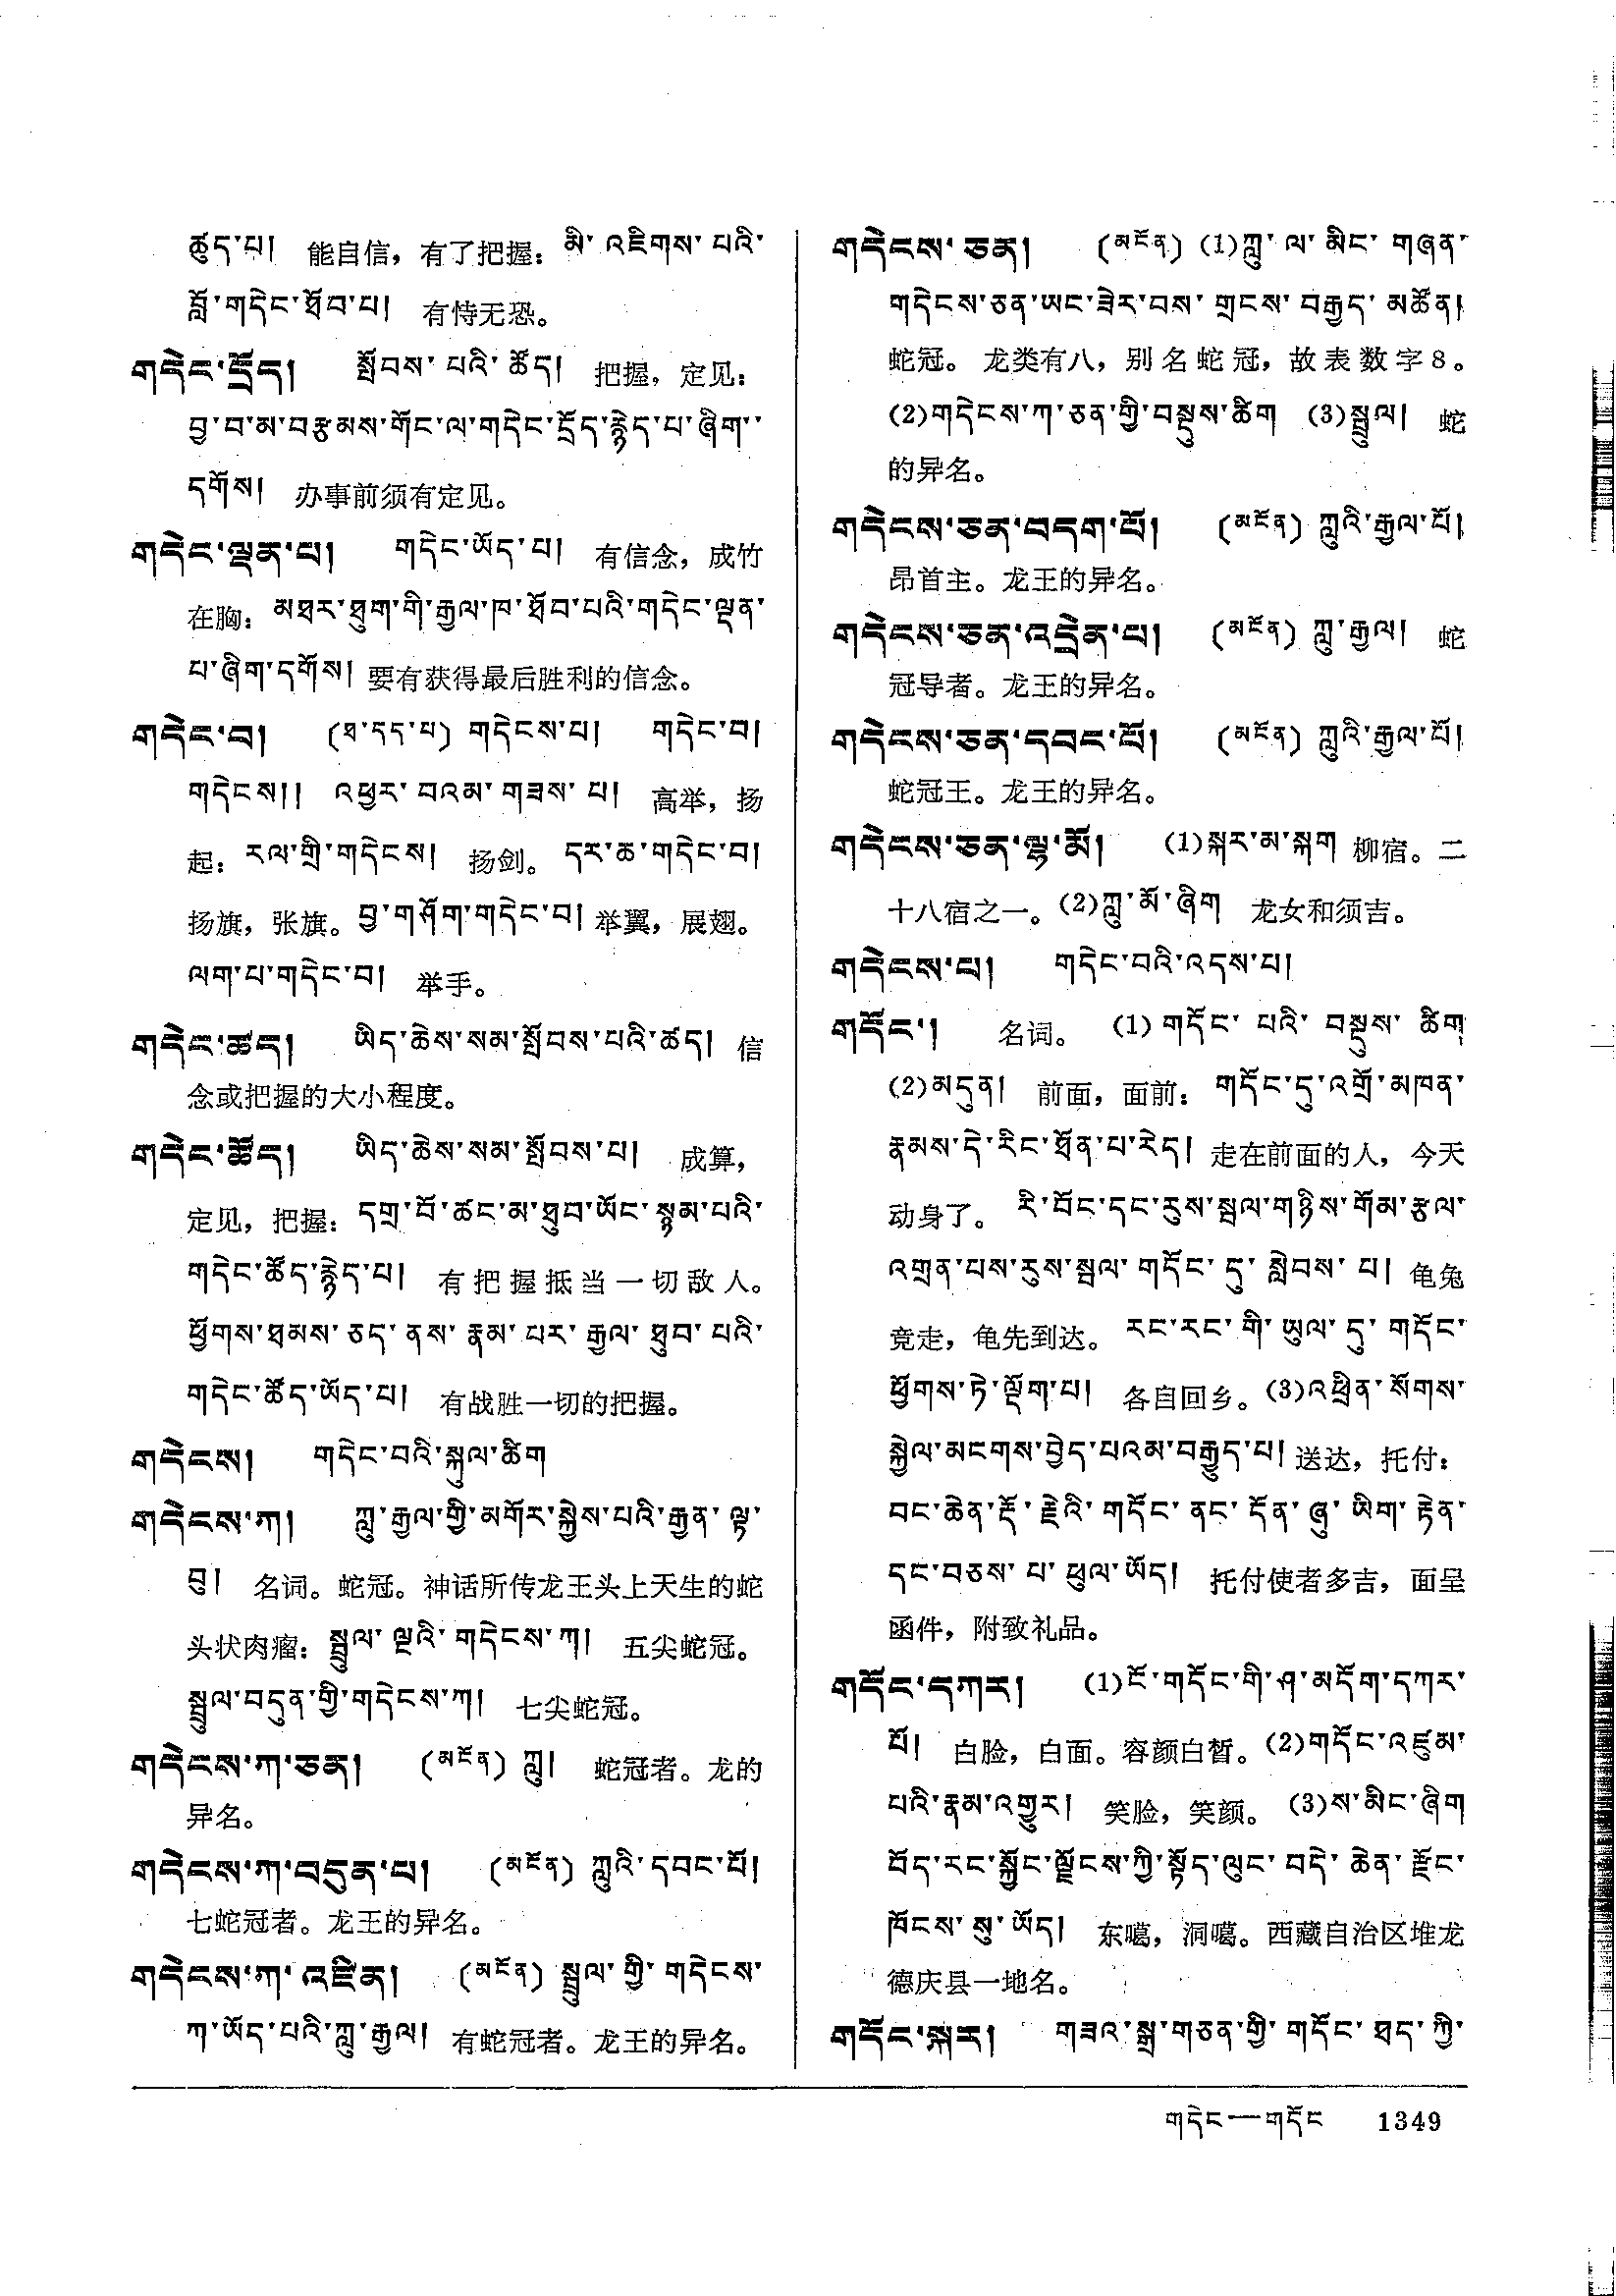 ཚུད་པ། 能自信，有了把握：མི་འཇིགས་པའི་
བློ་གདེང་ཐོབ་པ། 有恃无恐。
གདེང་དྲོད། སྤོབས་པའི་ཚོད། 把握，定见：
བྱ་བ་མ་བརྩམས་གོང་ལ་གདེང་དྲོད་རྙེད་པ་ཞིག་
དགོས། 办事前须有定见。
གདེང་ལྡན་པ། གདེང་ཡོད་པ། 有信念，成竹
在胸：མཐར་ཐུག་གི་རྒྱལ་ཁ་ཐོབ་པའི་གདེང་ལྡན་
པ་ཞིག་དགོས། 要有获得最后胜利的信念。
གདེང་བ། (ཐ་དད་པ) གདེངས་པ། གདེང་བ།
གདེངས།། འཕྱར་བའམ་གཟས་པ། 高举，扬
起：རལ་གྲི་གདེངས། 扬剑。དར་ཆ་གདེང་བ།
扬旗，张旗。བྱ་གཤོག་གདེང་བ། 举翼，展翅。
ལག་པ་གདེང་བ། 举手。
གདེང་ཚད། ཡིད་ཆེས་སམ་སྤོབས་པའི་ཚད། 信
念或把握的大小程度。
གདེང་ཚོད། ཡིད་ཆེས་སམ་སྤོབས་པ། 成算，
定见，把握：དགྲ་བོ་ཚང་མ་ཐུབ་ཡོང་སྙམ་པའི་
གདེང་ཚོད་རྙེད་པ། 有把握抵当一切敌人。
ཕྱོགས་ཐམས་ཅད་ནས་རྣམ་པར་རྒྱལ་ཐུབ་པའི་
གདེང་ཚོད་ཡོད་པ། 有战胜一切的把握。
གདེངས། གདེང་བའི་སྐུལ་ཚིག
གདེངས་ཀ། ཀླུ་རྒྱལ་གྱི་མགོར་སྐྱེས་པའི་རྒྱན་ལྟ་
བུ། 名词。蛇冠。神话所传龙王头上天生的蛇
头状肉瘤：སྦྲུལ་ལྔའི་གདེངས་ཀ། 五尖蛇冠。
སྦྲུལ་བདུན་གྱི་གདེངས་ཀ། 七尖蛇冠。
གདེངས་ཀ་ཅན། (མངོན) ཀླུ། 蛇冠者。龙的
异名。
གདེངས་ཀ་བདུན་པ། (མངོན) ཀླུའི་དབང་པོ།
七蛇冠者。龙王的异名。
གདེངས་ཀ་འཛིན། (མངོན) སྦྲུལ་གྱི་གདེངས་
ཀ་ཡོད་པའི་ཀླུ་རྒྱལ། 有蛇冠者。龙王的异名。
གདེངས་ཅན། (མངོན) (1)ཀླུ་ལ་མིང་གཞན་
གདེངས་ཅན་ཡང་ཟེར་བས་གྲངས་བརྒྱད་མཚོན།
蛇冠。龙类有八，别名蛇冠，故表数字8。
(2)གདེངས་ཀ་ཅན་གྱི་བསྡུས་ཚིག (3)སྦྲུལ། 蛇
的异名。
གདེངས་ཅན་བདག་པོ། (མངོན) ཀླུའི་རྒྱལ་པོ།
昂首主。龙王的异名。
གདེངས་ཅན་འདྲེན་པ། (མངོན) ཀླུ་རྒྱལ། 蛇
冠导者。龙王的异名。
གདེངས་ཅན་དབང་པོ། (མངོན) ཀླུའི་རྒྱལ་པོ།
蛇冠王。龙王的异名。
གདེངས་ཅན་ལྷ་མོ། (1)སྐར་མ་སྐག 柳宿。二
十八宿之一。(2)ཀླུ་མོ་ཞིག 龙女和须吉。
གདེངས་པ། གདེང་བའི་འདས་པ།
གདོང་། 名词。(1) གདོང་པའི་བསྡུས་ཚིག
(2)མདུན། 前面，面前：གདོང་དུ་འགྲོ་མཁན་
རྣམས་དེ་རིང་ཐོན་པ་རེད། 走在前面的人，今天
动身了。རི་བོང་དང་རུས་སྦལ་གཉིས་གོམ་རྩལ་
འགྲན་པས་རུས་སྦལ་གདོང་དུ་སླེབས་པ། 龟兔
竞走，龟先到达。རང་རང་གི་ཡུལ་དུ་གདོང་
ཕྱོགས་ཏེ་ལྡོག་པ། 各自回乡。(3)འཕྲིན་སོགས་
སྐྱེལ་མངགས་བྱེད་པའམ་བརྒྱུད་པ། 送达，托付：
བང་ཆེན་རྡོ་རྗེའི་གདོང་ནང་དོན་ཞུ་ཡིག་རྟེན་
དང་བཅས་པ་ཕུལ་ཡོད། 托付使者多吉，面呈
函件，附致礼品。
གདོང་དཀར། (1)ངོ་གདོང་གི་ཤ་མདོག་དཀར་
པོ། 白脸，白面。容颜白晳。(2)གདོང་འཛུམ་
པའི་རྣམ་འགྱུར། 笑脸，笑颜。(3)ས་མིང་ཞིག
བོད་རང་སྐྱོང་ལྗོངས་ཀྱི་སྟོད་ལུང་བདེ་ཆེན་རྫོང་
ཁོངས་སུ་ཡོད། 东噶，洞噶。西藏自治区堆龙
德庆县一地名。
གདོང་སྐར། གཟའ་སྒྲ་གཅན་གྱི་གདོང་ཐད་ཀྱི་
གདེང—གདོང 1349